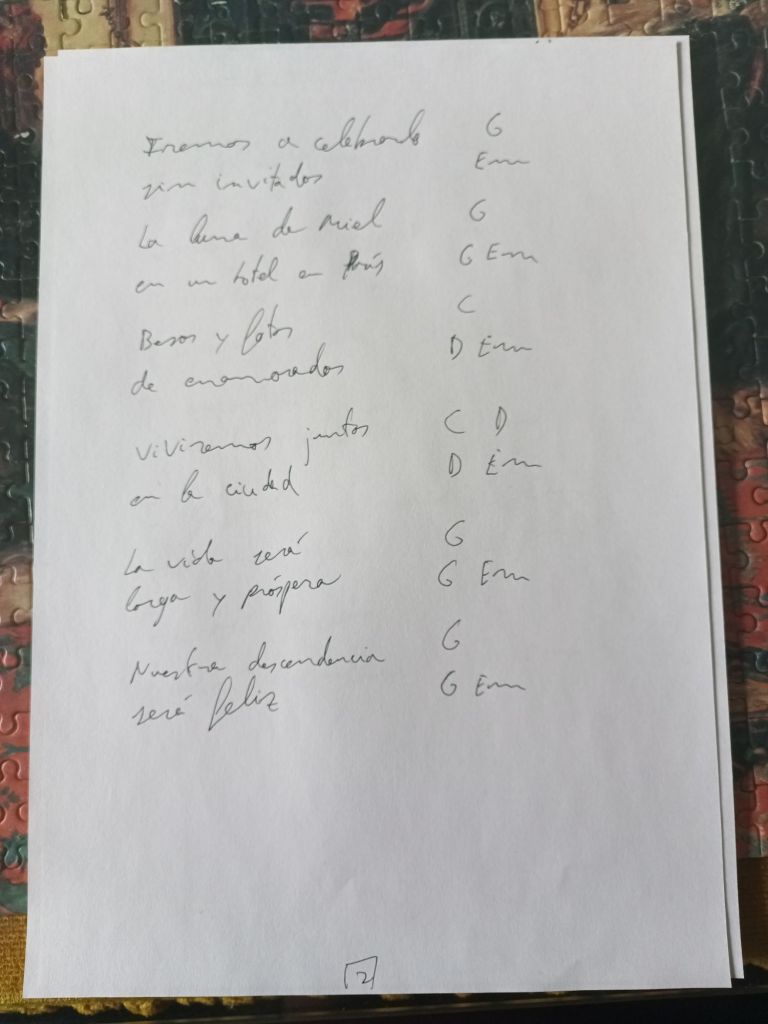 Iremos a celebrarlo G
sin invitados Em
La luna de miel G
en un hotel en París G Em
Besos y fotos C
de enamorados D Em
Viviremos juntos C D
en la ciudad D Em
La vida será G
larga y próspera G Em
Nuestra descendencia G
será feliz G Em
2